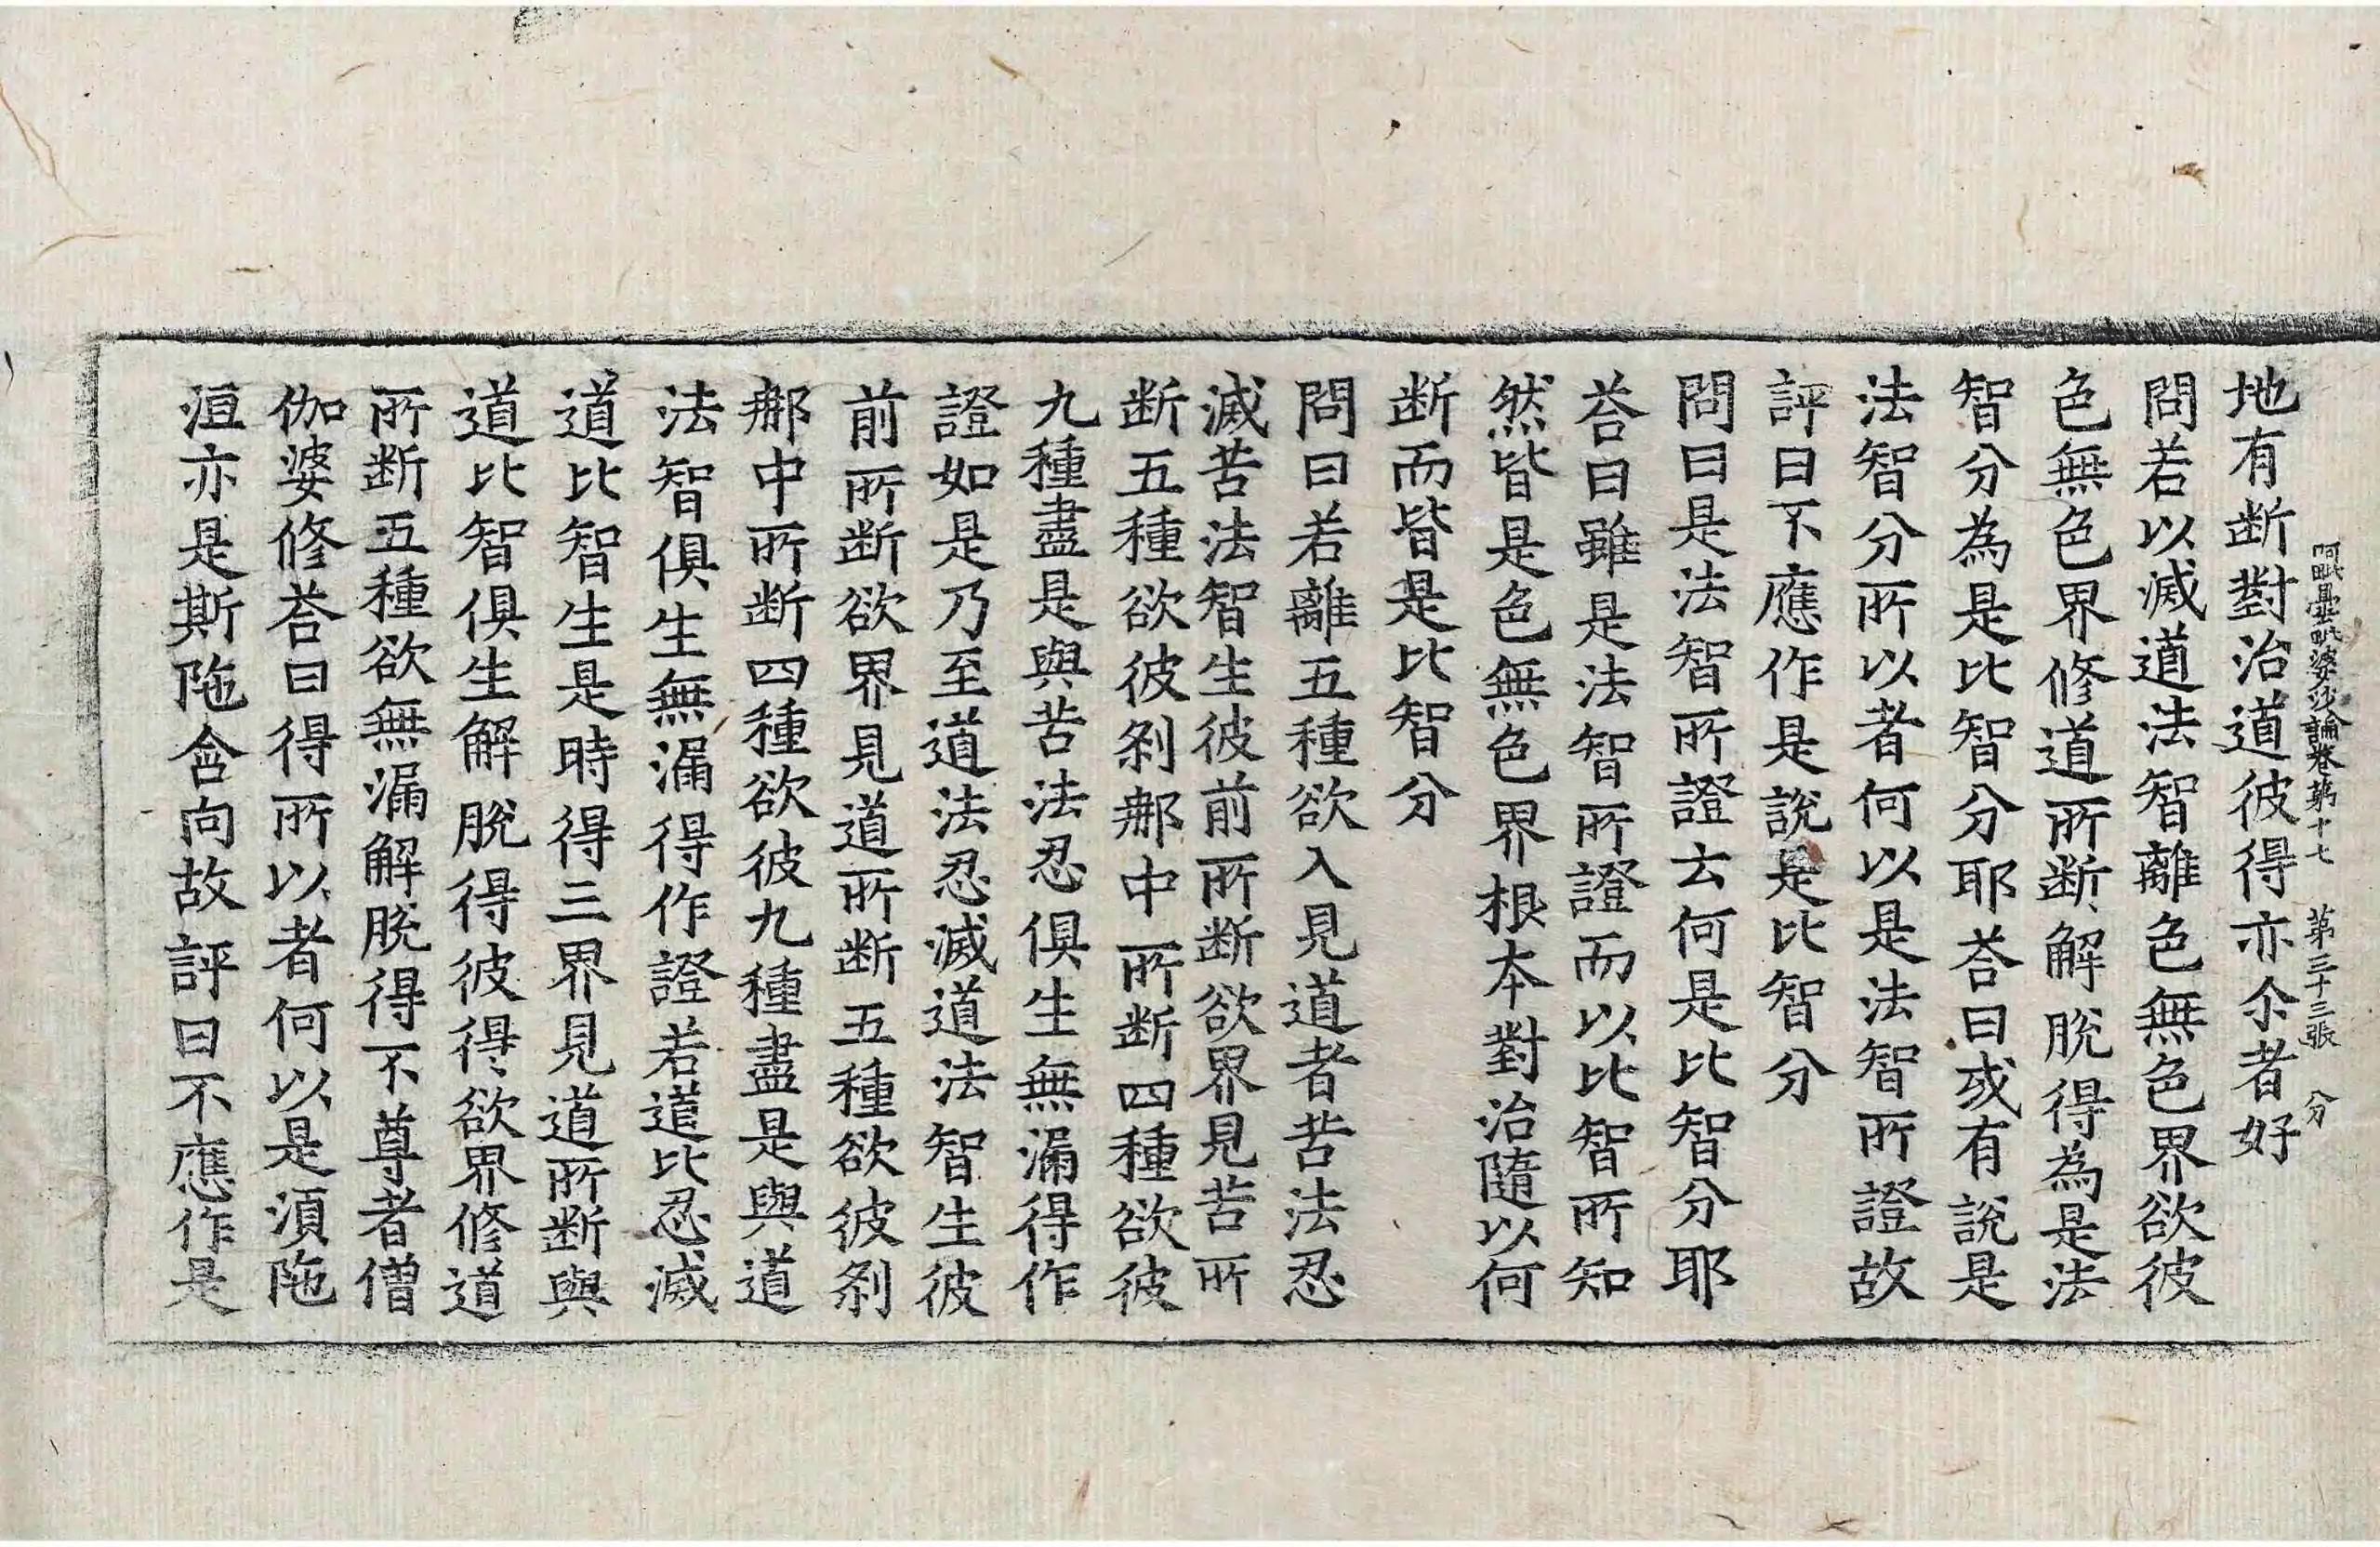 阿毗曇毗婆沙論卷第十七 第三十三張 分
地有断對治道彼得亦尒者好
問若以滅道法智離色無色界欲彼
色無色界修道所断解脫得為是法
智分為是比智分耶荅曰或有說是
法智分所以者何以是法智所證故
評曰不應作是說是比智分
問曰是法智所證云何是比智分耶
荅曰雖是法智所證而以比智所知
然皆是色無色界根本對治隨以何
断而皆是比智分
問曰若離五種欲入見道者苦法忍
滅苦法智生彼前所断欲界見苦所
断五種欲彼剎那中所断四種欲彼
九種盡是與苦法忍俱生無漏得作
證如是乃至道法忍滅道法智生彼
前所断欲界見道所断五種欲彼剎
那中所断四種欲彼九種盡是與道
法智俱生無漏得作證若道比忍滅
道比智生是時得三界見道所断與
道比智俱生解脫得彼得欲界修道
所断五種欲無漏解脫得不尊者僧
伽婆修荅曰得所以者何以是湏陁
洹亦是斯陁含向故評曰不應作是